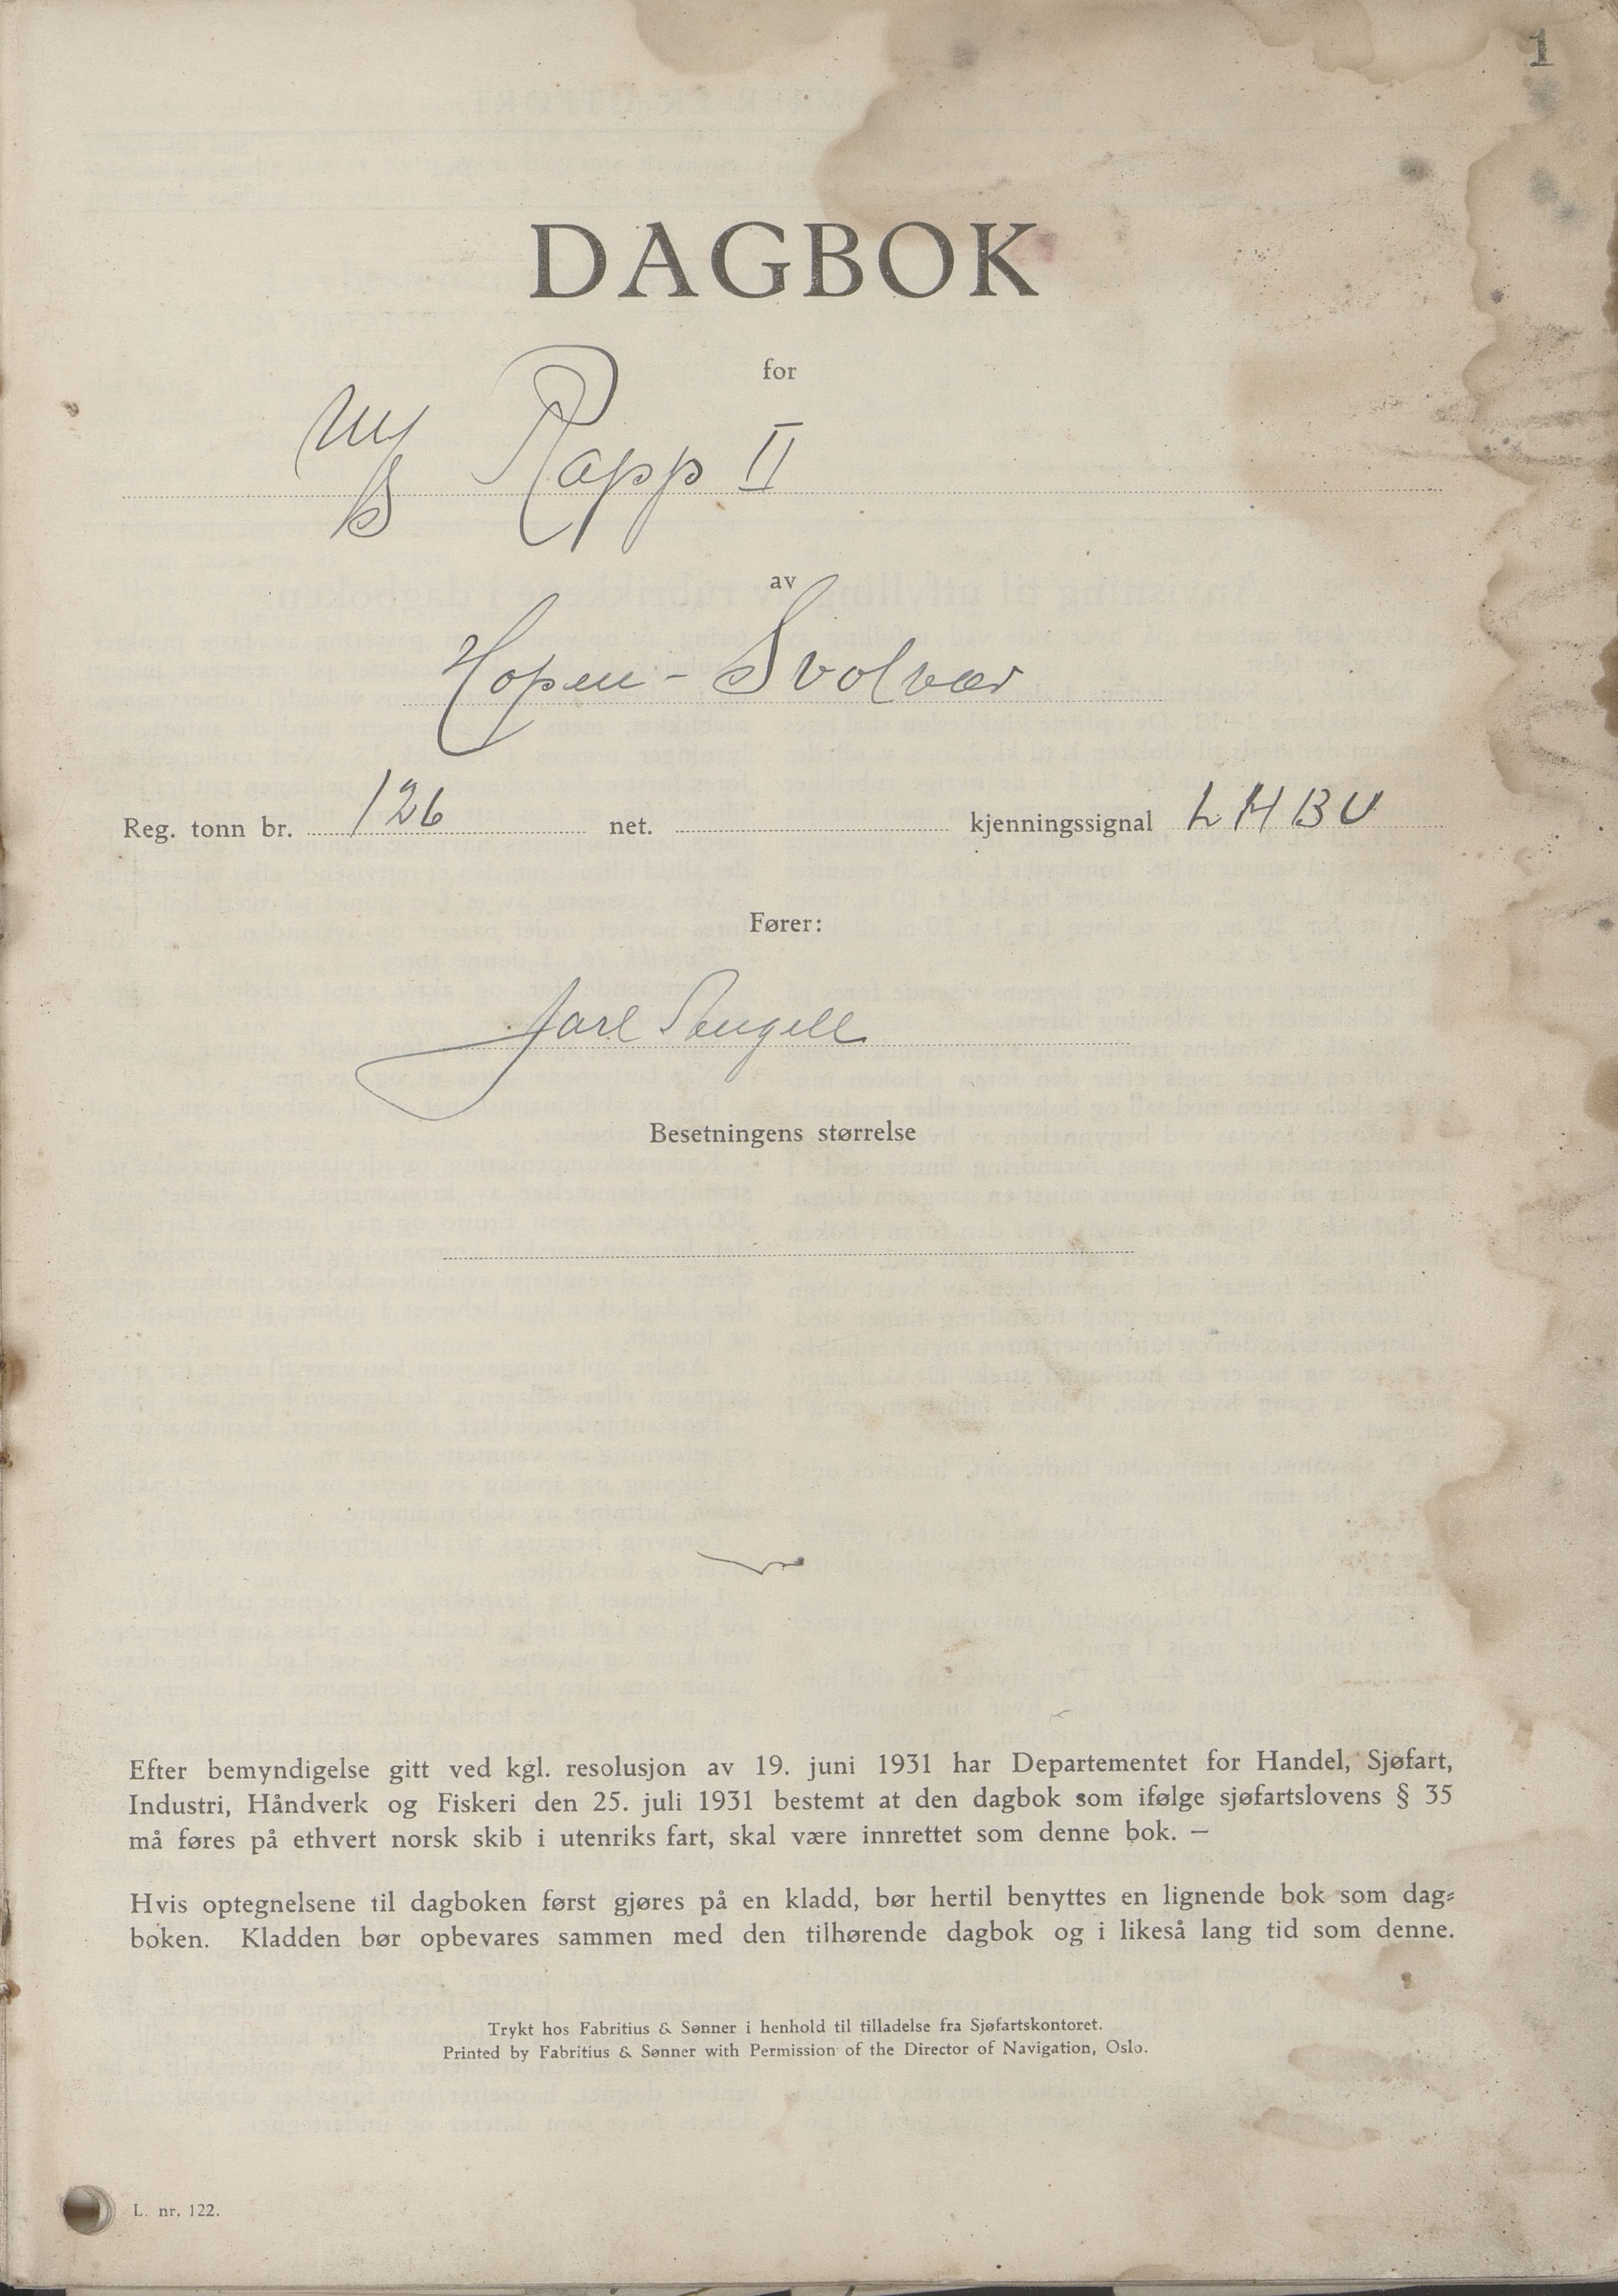 1
DAGBOK
for
M/S Rapp II
av
Hopen - Svolvær
Reg. tonn br. 126 net. kjenningssignal LHBU
Fører:
Jarl
Besetningens størrelse
Efter bemyndigelse gitt ved kgl. resolusjon av 19. juni 1931 har Departementet for Handel, Sjøfart,
Industri, Håndverk og Fiskeri den 25. juli 1931 bestemt at den dagbok som ifølge sjøfartslovens § 35
må føres på ethvert norsk skib i utenriks fart, skal være innrettet som denne bok. —
Hvis optegnelsene til dagboken først gjøres på en kladd, bør hertil benyttes en lignende bok som dag-
boken. Kladden bør opbevares sammen med den tilhørende dagbok og i likeså lang tid som denne.
Trykt hos Fabritius & Sønner i henhold til tilladelse fra Sjøfartskontoret.
Printed by Fabritius & Sønner with Permission of the Director of Navigation, Oslo.
L. nr. 122.